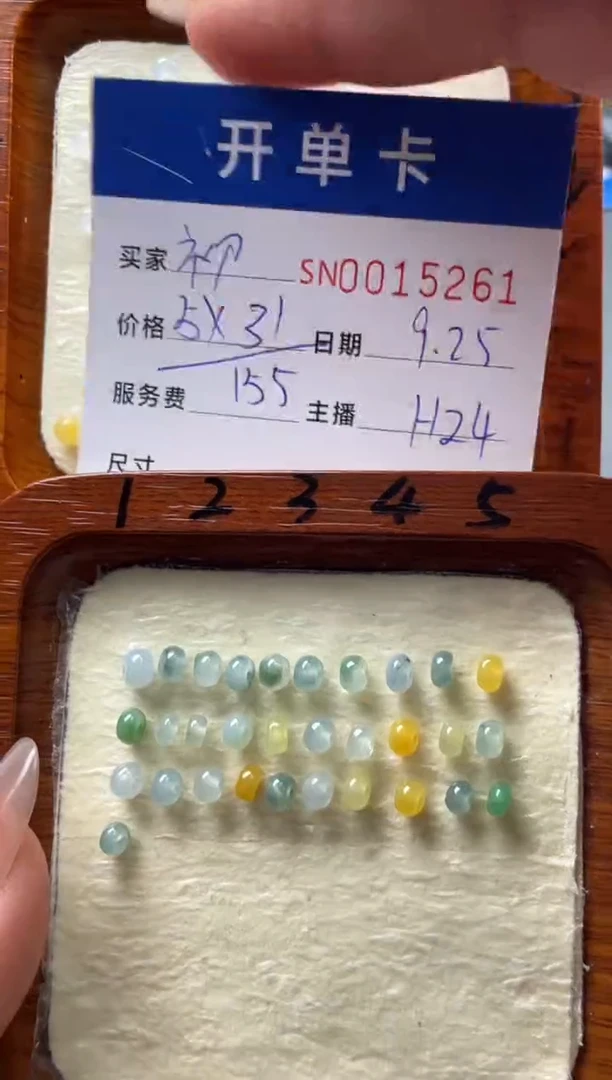 开单卡
买家 初 SN0015261
价格 5X31 日期 9.25
服务费 155 主播 H24
尺寸
1 2 3 4 5